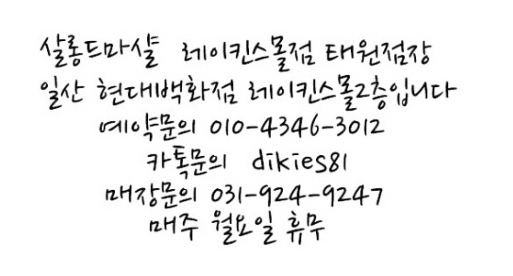 살롱드마샬 레이킨스몰점 태원점장
일산 현대백화점 레이킨스몰2층입니다
예약문의 010-4346-3012
카톡문의 dikies81
매장문의 031-924-9247
매주 월요일 휴무